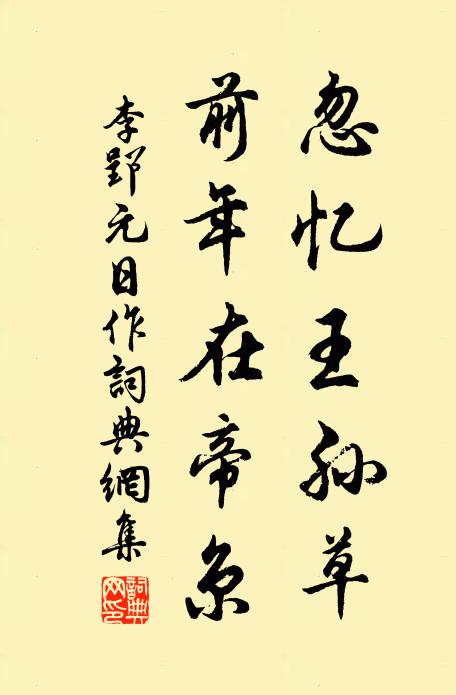 忽忆王孙草
前年在帝京
李郢元日作詞典網集
詞典網印